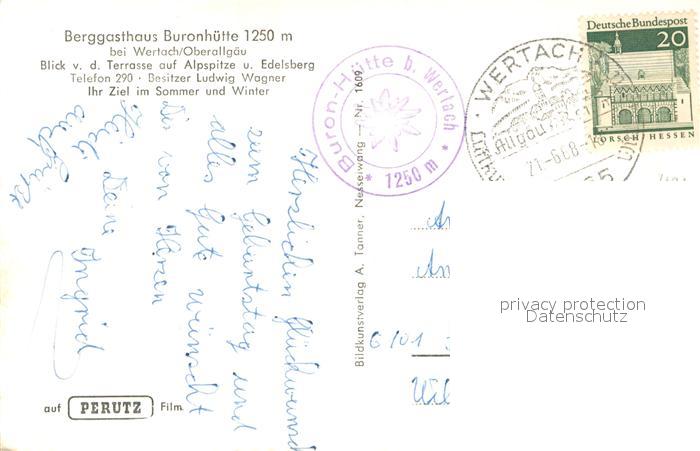 Berggasthaus Buronhütte 1250 m
bei Wertach/Oberallgäu
Blick v. d. Terrasse auf Alpspitze u. Edelsberg
Telefon 290 · Besitzer Ludwig Wagner
Ihr Ziel im Sommer und Winter
Herzlichen Glückwunsch
zum Geburtstag und
alles Gute wünscht
Dir von Herzen
Deine Ingrid
auf PERUTZ Film
Bildkunstverlag A. Tanner, Nesselwang — Nr. 1609
Buron-Hütte b. Wertach
* 1250 m *
WERTACH
Allgäu
21-6.68
Deutsche Bundespost
20
LORSCH HESSEN
privacy protection
Datenschutz